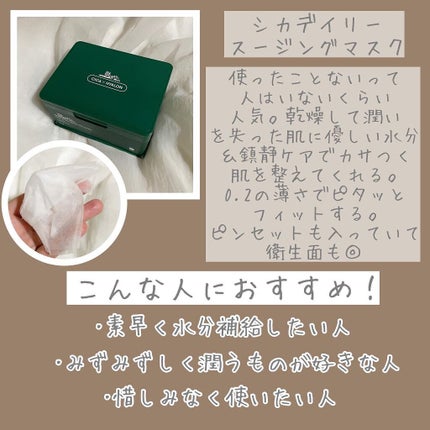 シカデイリー
スージングマスク
CICA HYALON
使ったことないって
人はいないくらい
人気。乾燥して潤い
を失った肌に優しい水分
&鎮静ケアでカサつく
肌を整えてくれる。
0.2の薄さでピタッと
フィットする。
ピンセットも入っていて
衛生面も◎
こんな人におすすめ！
・素早く水分補給したい人
・みずみずしく潤うものが好きな人
・惜しみなく使いたい人